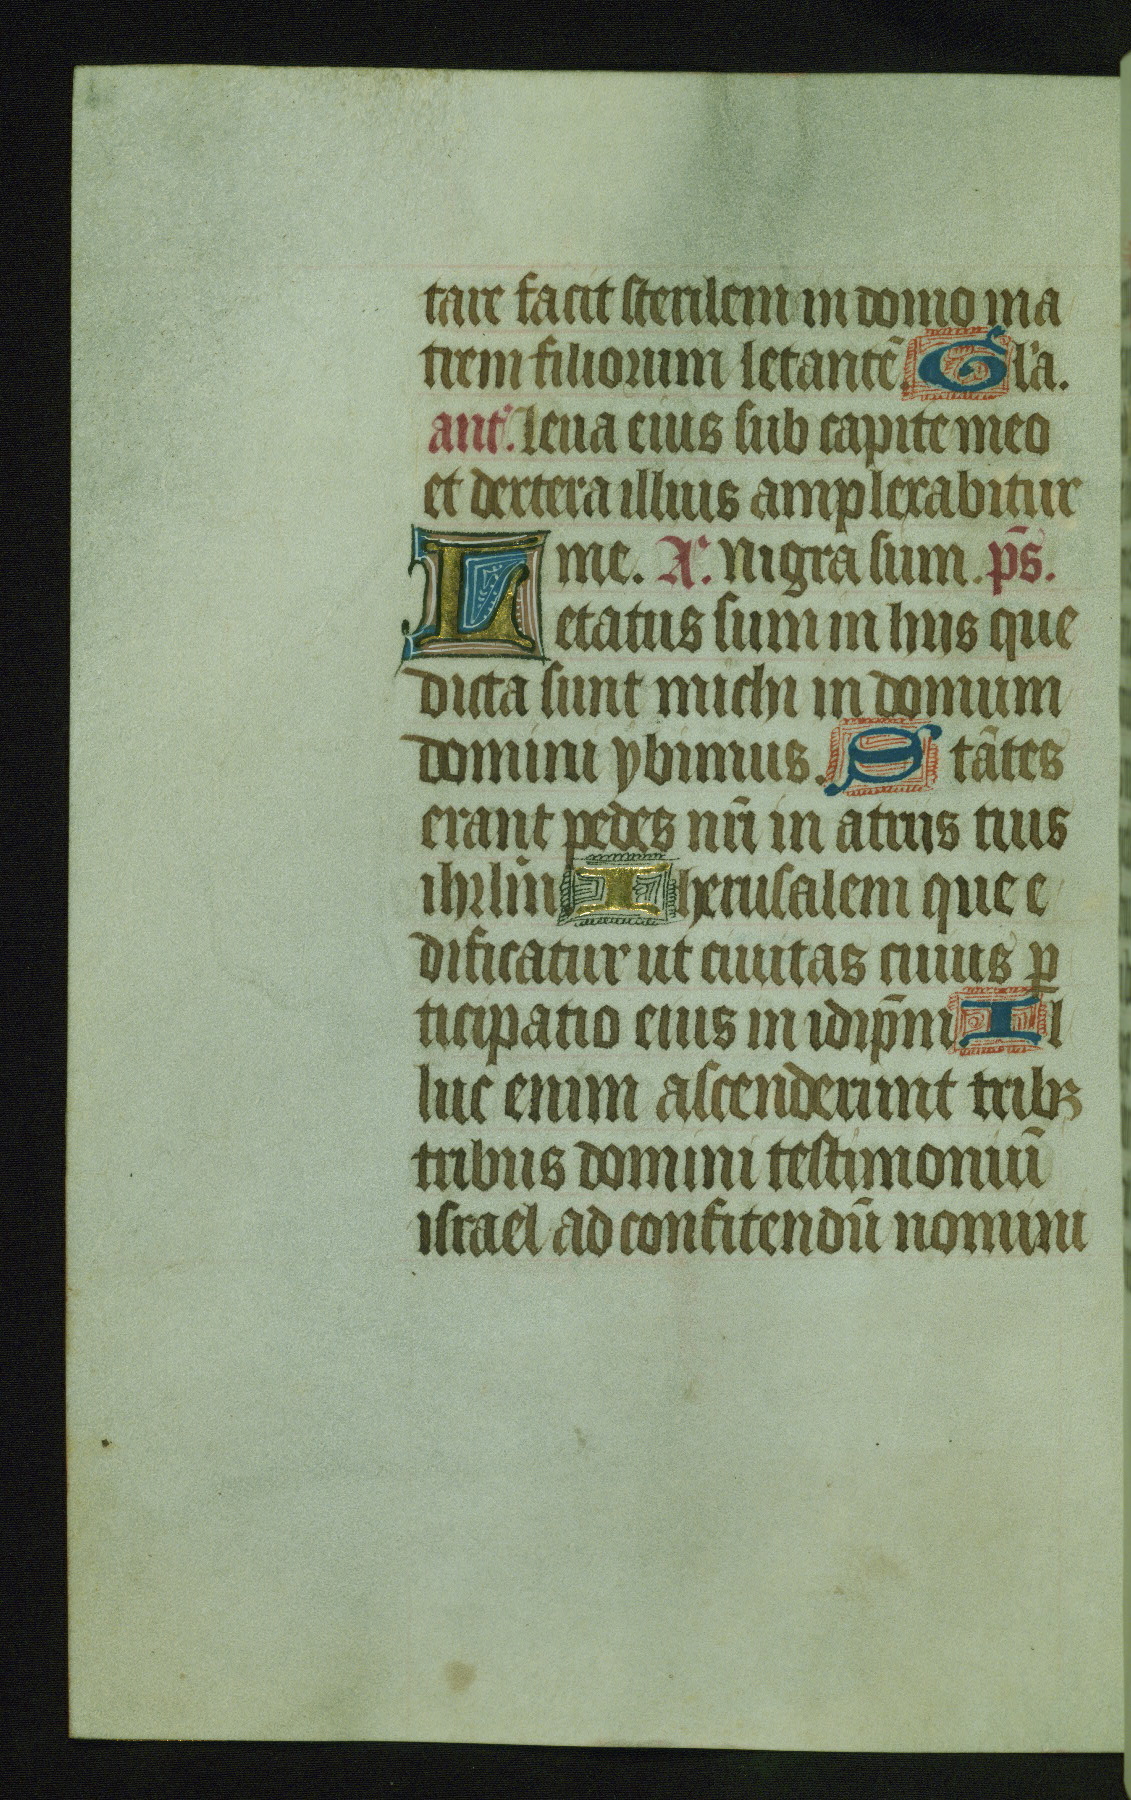 tare facit sterilem in domo ma
trem filiorum letantē. Gl'a.
ant'. Leua eius sub capite meo
et dextera illius amplexabitur
me. A'. Nigra sum. p̄s.
Letatus sum in hiis que
dicta sunt michi in domum
domini ybimus. Stātes
erant pedes nr̄i in atriis tuis
ihrlm̄ Iherusalem que e
dificatur ut ciuitas cuius ꝑ
ticipatio eius in idip̄m Il
luc enim ascenderunt tribꝫ
tribus domini testimoniū
israel ad confitendū nomini